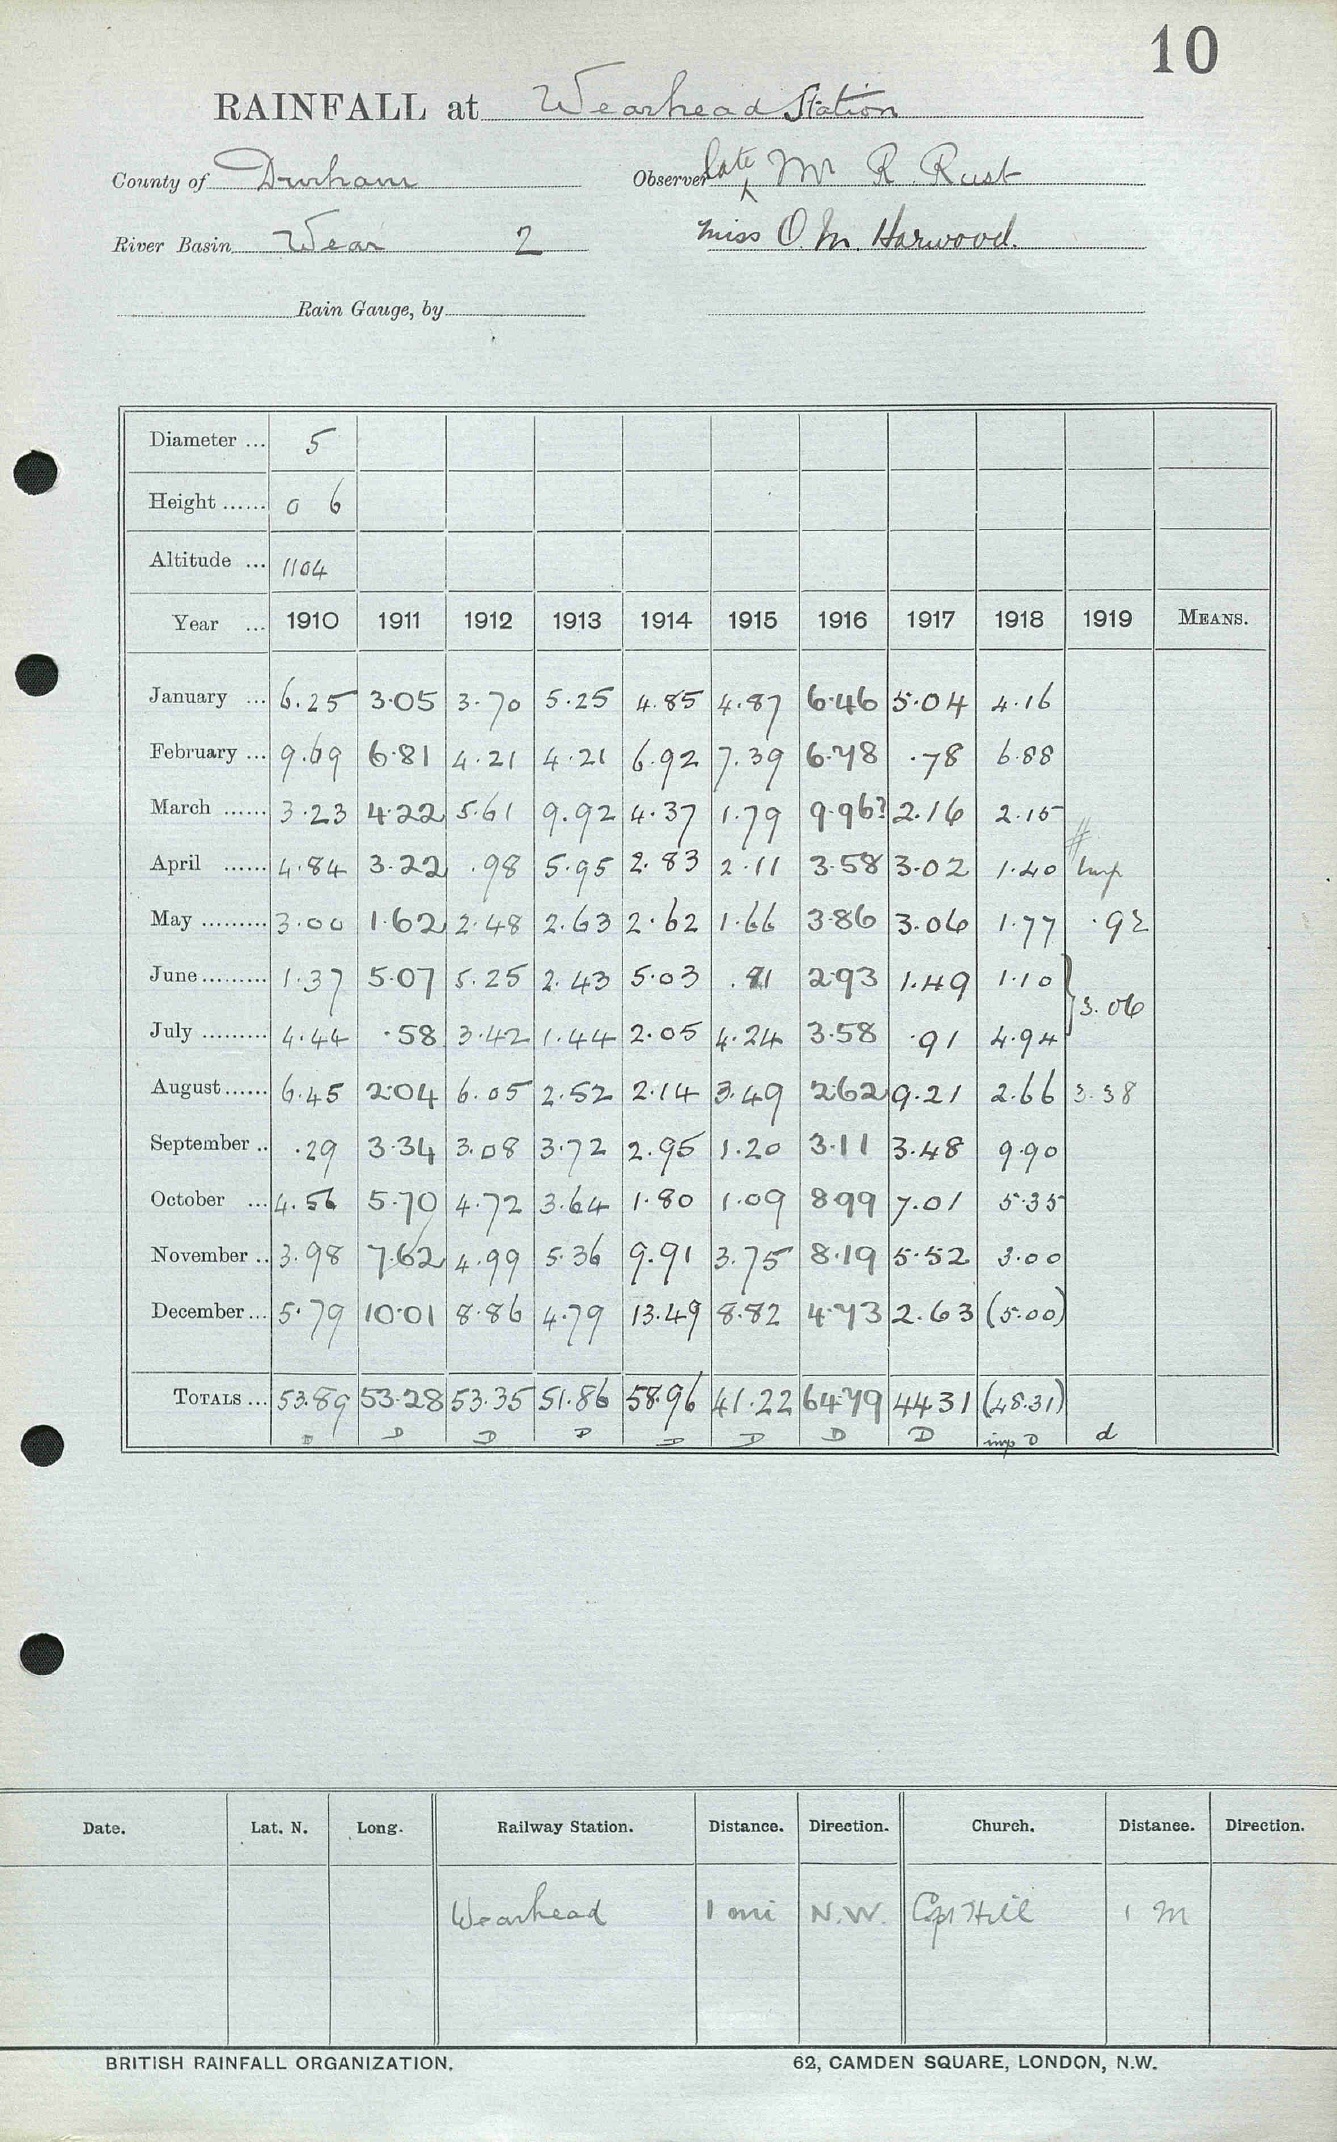 10
RAINFALL at Wearhead Station
County of Durham Observer late Mr R. Rust
River Basin Wear 2 Miss O. M. Harwood.
Rain Gauge, by
Diameter ... 5
Height ...... 0 6
Altitude ... 1104
Year ... 1910 1911 1912 1913 1914 1915 1916 1917 1918 1919 MEANS.
January ... 6.25 3.05 3.70 5.25 4.85 4.87 6.46 5.04 4.16
February ... 9.69 6.81 4.21 4.21 6.92 7.39 6.78 .78 6.88
March ...... 3.23 4.22 5.61 9.92 4.37 1.79 9.96? 2.16 2.15
April ...... 4.84 3.22 .98 5.95 2.83 2.11 3.58 3.02 1.40 Imp
May ......... 3.00 1.62 2.48 2.63 2.62 1.66 3.86 3.06 1.77 .92
June ......... 1.37 5.07 5.25 2.43 5.03 .81 2.93 1.49 1.10 } 3.06
July ......... 4.44 .58 3.42 1.44 2.05 4.24 3.58 .91 4.94
August ...... 6.45 2.04 6.05 2.52 2.14 3.49 2.62 9.21 2.66 3.38
September .. .29 3.34 3.08 3.72 2.95 1.20 3.11 3.48 9.90
October ... 4.56 5.70 4.72 3.64 1.80 1.09 8.99 7.01 5.35
November .. 3.98 7.62 4.99 5.36 9.91 3.75 8.19 5.52 3.00
December ... 5.79 10.01 8.86 4.79 13.49 8.82 4.73 2.63 (5.00)
TOTALS ... 53.89 53.28 53.35 51.86 58.96 41.22 64.79 44.31 (48.31)
D D D D D D D D imp D d
Date. Lat. N. Long. Railway Station. Distance. Direction. Church. Distance. Direction.
Wearhead 1 mi N.W. Cps Hill 1 m
BRITISH RAINFALL ORGANIZATION. 62, CAMDEN SQUARE, LONDON, N.W.